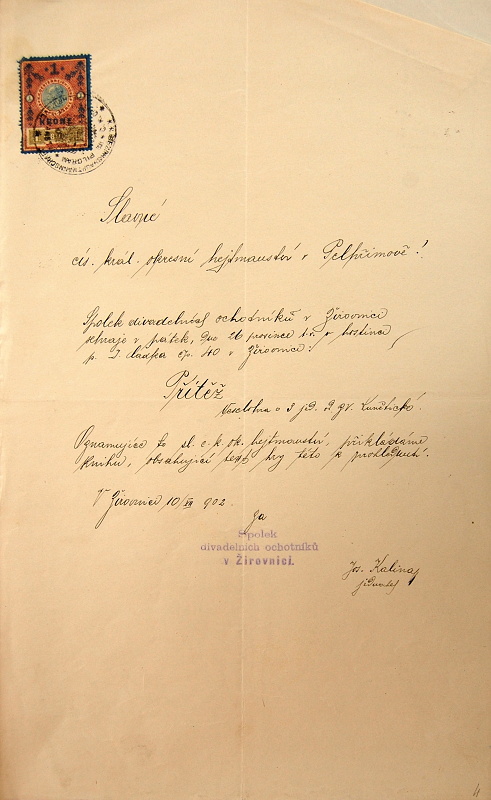 1
KRONE
PILGRAM
Slavné
cís. král. okresní hejtmanství v Pelhřimově!
Spolek divadelních ochotníků v Žirovnici
sehraje v pátek, dne 26 prosince t.r. v hostinci
p. J. čp. 40 v Žirovnici:
Přítěž
Veselohra o 3 jed. Kunětická.
Oznamujíce to sl. c. k. ok. hejtmanství, přikládáme
knihu, obsahující text hry této k prohlédnutí.
V Žirovnici 10/XII 902.
Za
Spolek
divadelních ochotníků
v Žirovnici.
Jos. Kalina
jednatel
4